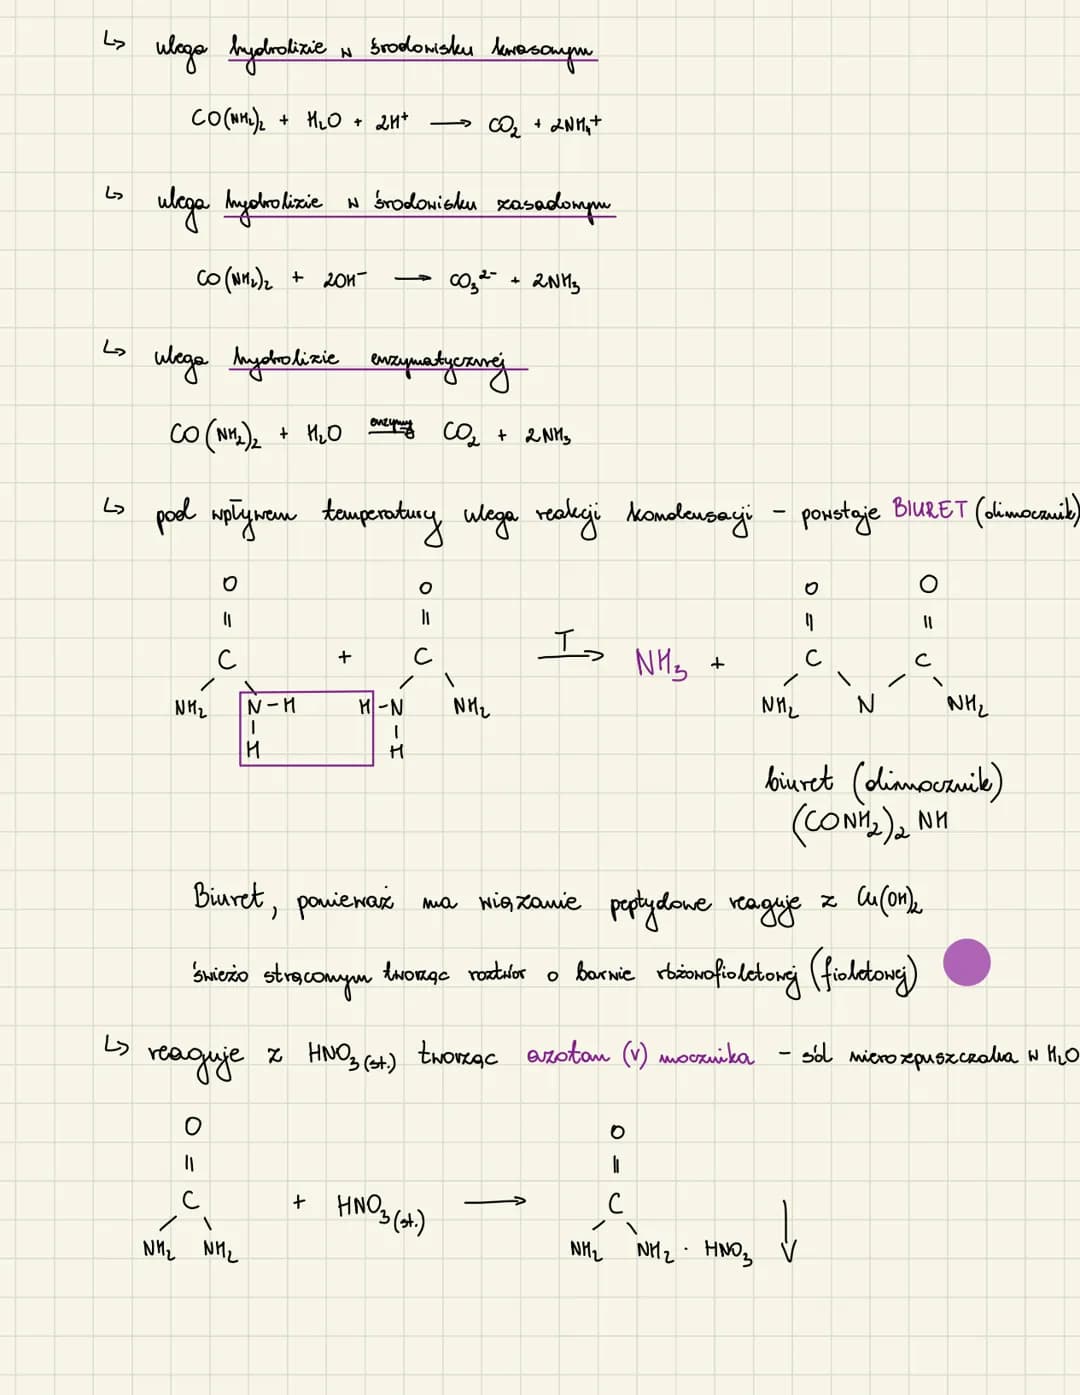 ↳ ulega hydrolizie w środowisku kwasowym
CO(NH₂)₂ + H₂O + 2H⁺ → CO₂ + 2NH₄⁺
↳ ulega hydrolizie w środowisku zasadowym
CO(NH₂)₂ + 2OH⁻ → CO₃²⁻ + 2NH₃
↳ ulega hydrolizie enzymatycznej
CO(NH₂)₂ + H₂O enzymy → CO₂ + 2NH₃
↳ pod wpływem temperatury ulega reakcji kondensacji - powstaje BIURET (dimocznik)
O O O O
|| || || ||
C + C T → NH₃ + C C
NH₂ N-H H-N NH₂ NH₂ N NH₂
H H
biuret (dimocznik)
(CONH₂)₂ NH
Biuret, ponieważ ma wiązanie peptydowe reaguje z Cu(OH)₂
świeżo strąconym tworząc roztwór o barwie różowofioletowej (fioletowej)
↳ reaguje z HNO₃(st.) tworząc azotan (V) mocznika - sól nierozpuszczalna w H₂O
O O
|| ||
C + HNO₃(st.) → C
NH₂ NH₂ NH₂ NH₂ · HNO₃ ↓